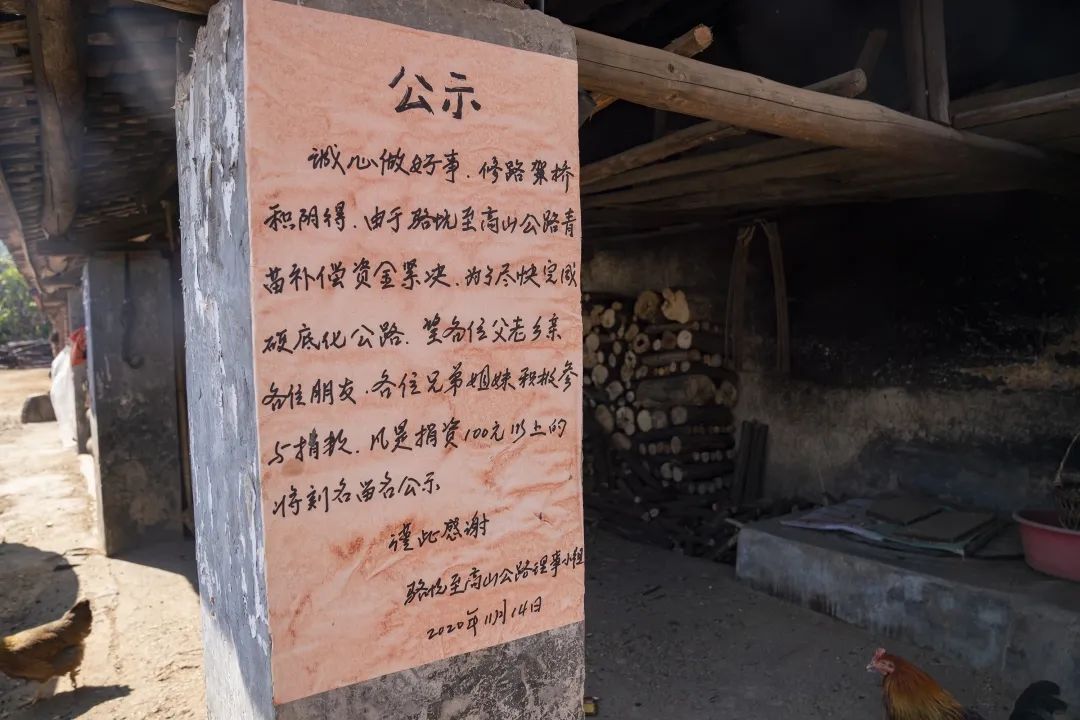 公示
诚心做好事.修路架桥
积阴得.由于骆坑至高山公路青
苗补偿资金紧决.为了尽快完成
硬底化公路.望各位父老乡亲
各位朋友.各位兄弟姐妹积极参
与捐款.凡是捐资100元以上的
将刻名苗名公示
谨此感谢
骆坑至高山公路理事小组
2020年11月14日